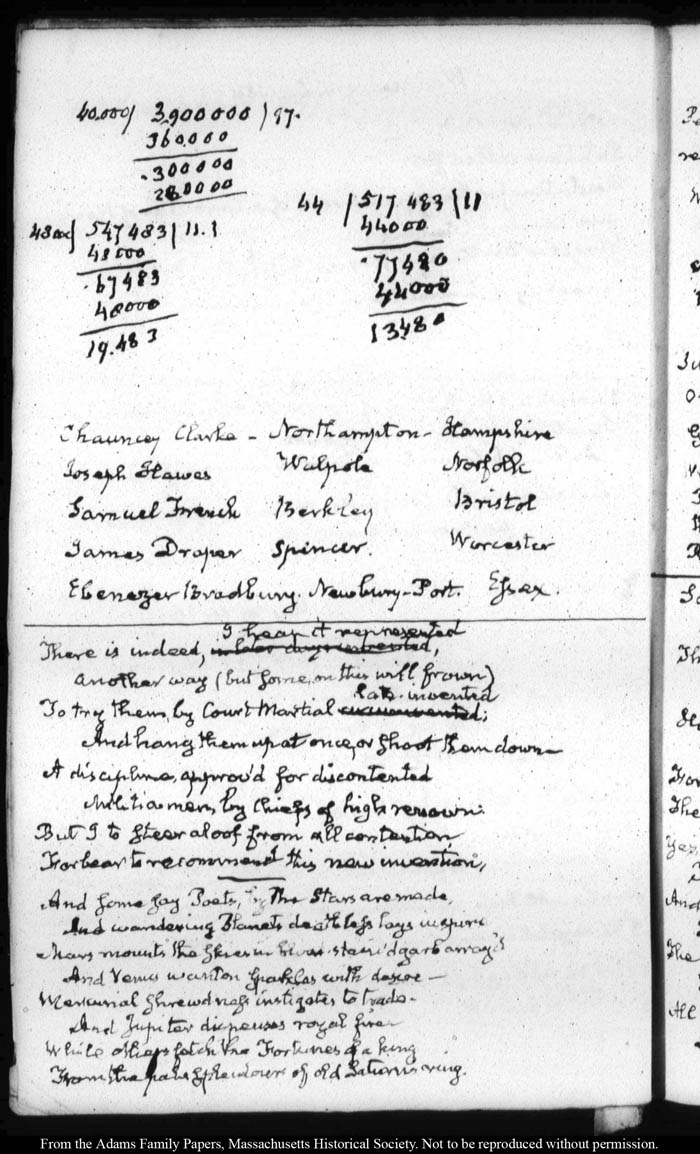 40,000) 3,900 000 ) 97.
360,000
300000
280000
44 ) 517 483 ) 11
44000
77480
44000
13480
48000) 547483 ) 11.1
48000
67483
48000
19.483
Chauncey Clarke - Northampton - Hampshire
Joseph Hawes Walpole Norfolk
Samuel French Berkley Bristol
James Draper Spencer. Worcester
Ebenezer Bradbury. Newbury-Port. Essex.
I hear it represented
There is indeed, in later days invented,
Another way (but some, on this will frown)
late invented
To try them, by Court Martial
And hang them up at once, or shoot them down—
A discipline, approv'd for discontented
Militia men, by Chiefs of high renown:
But I to steer aloof from all contention
Forbear to recommend this new invention,
And some say Poets, by the Stars are made,
And wandering Planets deathless lays inspire
Mars mounts the skies in blood-stain'd garb array'd
And Venus wanton sparkles with desire—
Mercurial shrewdness instigates to trade.
And Jupiter dispenses royal fire
While others fetch the Fortunes of a king
From the pale splendours of old Saturn's ring.
From the Adams Family Papers, Massachusetts Historical Society. Not to be reproduced without permission.